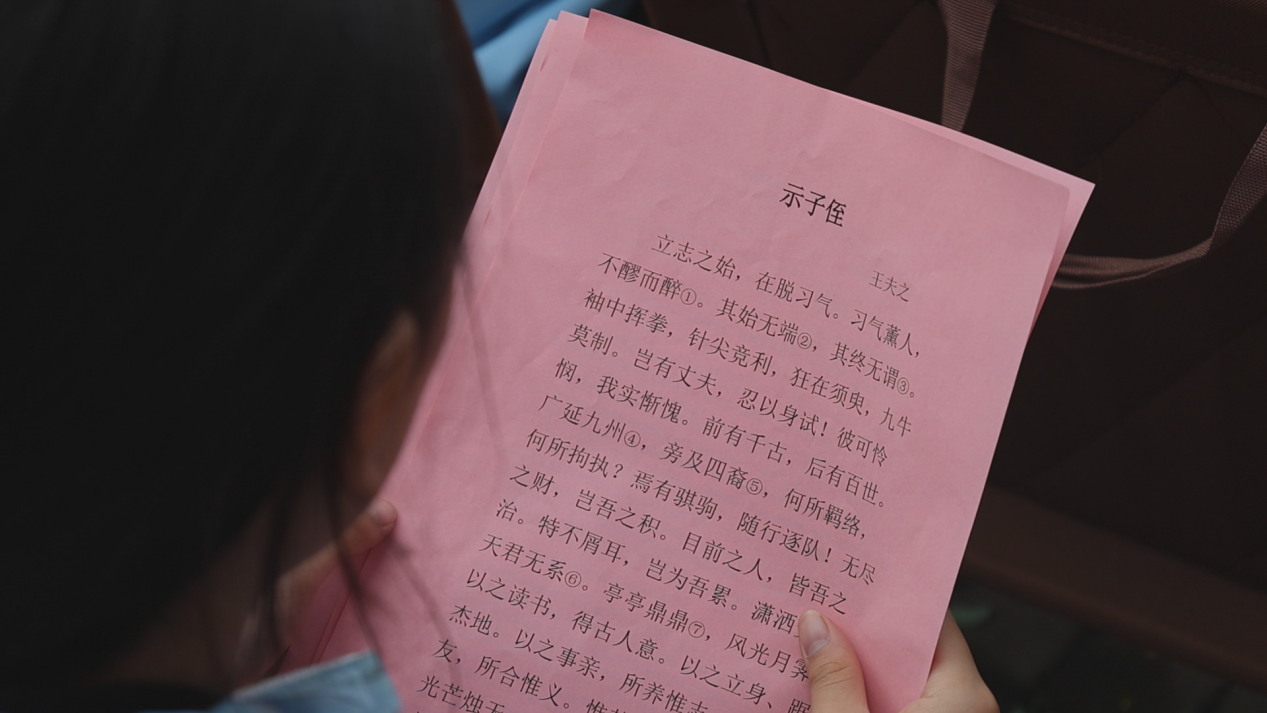 示子侄
王夫之
立志之始，在脱习气。习气薰人，
不醪而醉①。其始无端②，其终无谓③。
袖中挥拳，针尖竞利，狂在须臾，九牛
莫制。岂有丈夫，忍以身试！彼可怜
悯，我实惭愧。前有千古，后有百世。
广延九州④，旁及四裔⑤，何所羁络，
何所拘执？焉有骐驹，随行逐队！无尽
之财，岂吾之积。目前之人，皆吾之
治。特不屑耳，岂为吾累。潇洒
天君无系⑥。亭亭鼎鼎⑦，风光月
以之读书，得古人意。以之立身、踞
杰地。以之事亲，所养惟志
友，所合惟义。惟
光芒烛